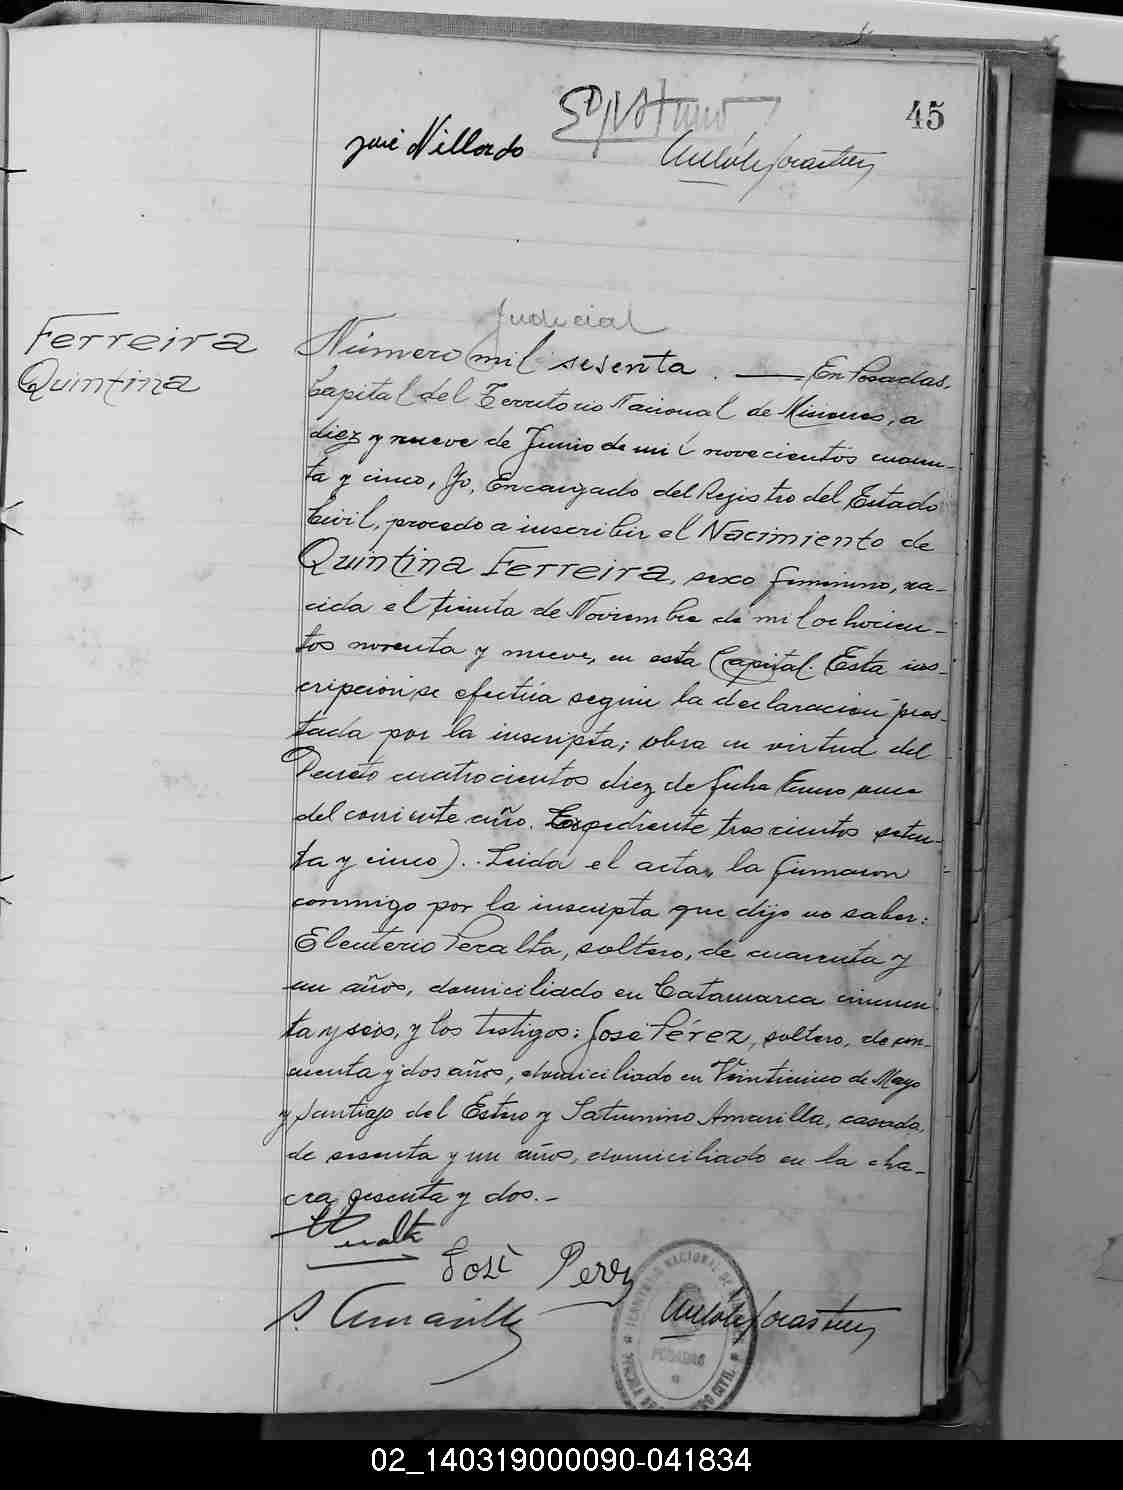 45
José Villordo
Judicial
Ferreira
Quintina
Número mil sesenta. — En Posadas,
Capital del Territorio Nacional de Misiones, a
diez y nueve de Junio de mil novecientos cuaren-
ta y cinco, Yo, Encargado del Registro del Estado
Civil, procedo a inscribir el Nacimiento de
Quintina Ferreira, sexo femenino, na-
cida el treinta de Noviembre de mil ochocien-
tos noventa y nueve, en esta Capital. Esta ins-
cripción se efectúa según la declaración pres-
tada por la inscripta; obra en virtud del
Decreto cuatrocientos diez de fecha Enero once
del corriente año. Expediente trescientos seten-
ta y cinco). Leida el acta, la firmaron
conmigo por la inscripta que dijo no saber:
Eleuterio Peralta, soltero, de cuarenta y
un años, domiciliado en Catamarca cincuen-
ta y seis, y los testigos: José Pérez, soltero, de cin-
cuenta y dos años, domiciliado en Veinticinco de Mayo
y Santiago del Estero y Saturnino Amarilla, casado,
de sesenta y un años, domiciliado en la cha-
cra sesenta y dos.-
José Perez
S. Amarilla
TERRITORIO NACIONAL DE
POSADAS
CIVIL
02_140319000090-041834